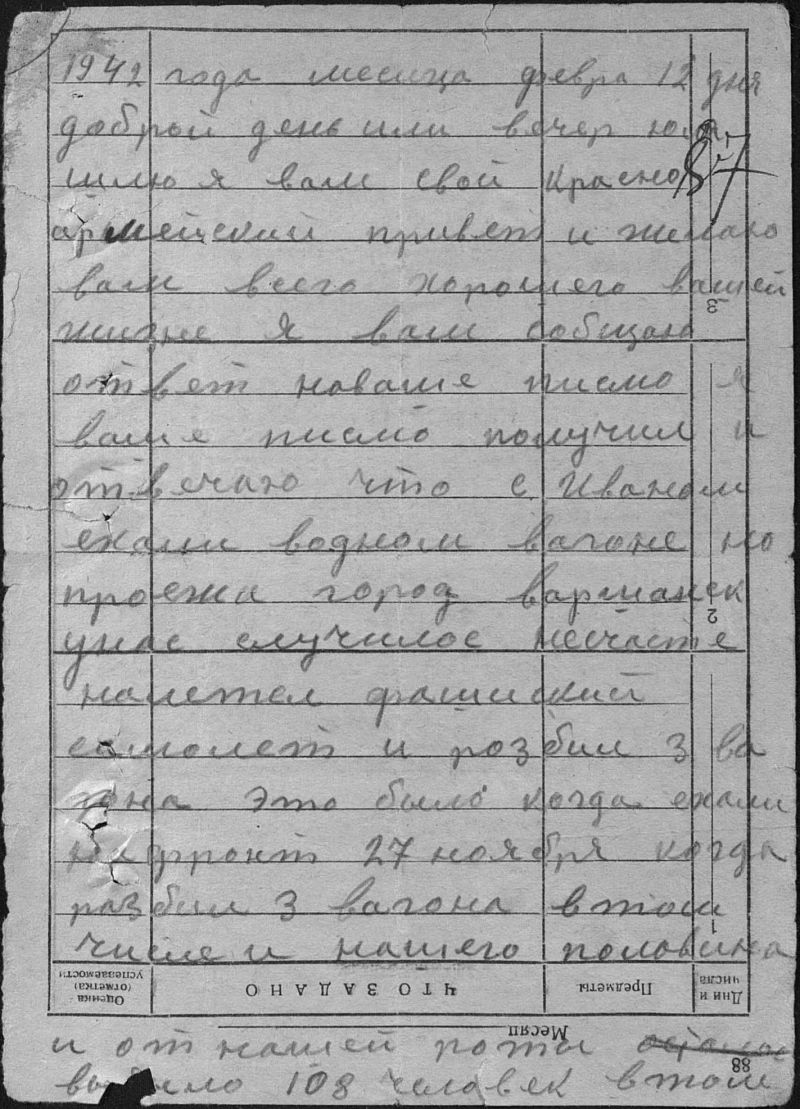 1942 года месеца февра 12 дня
добрый день или вечер
87
шлю я вам свой красно
армейский привет и желаю
вам всего хорошего вашей
жизне я вам собщаю
ответ наваше писмо я
ваше писмо получил и
отвечаю что с Иваном
ехали водном вагоне но
проежа город варманск
унас случилос несчасте
налетел фашиский
самолет и розбил 3 ва
гона это было когда ехали
нафронт 27 ноября когда
разбил 3 вагона втом
числе и нашего половина
3
2
1
Дни и числа
Предметы
ЧТО ЗАДАНО
Оценка (отметка) успеваемости
Месяц
и от нашей роты
88
выбыло 108 человек втом